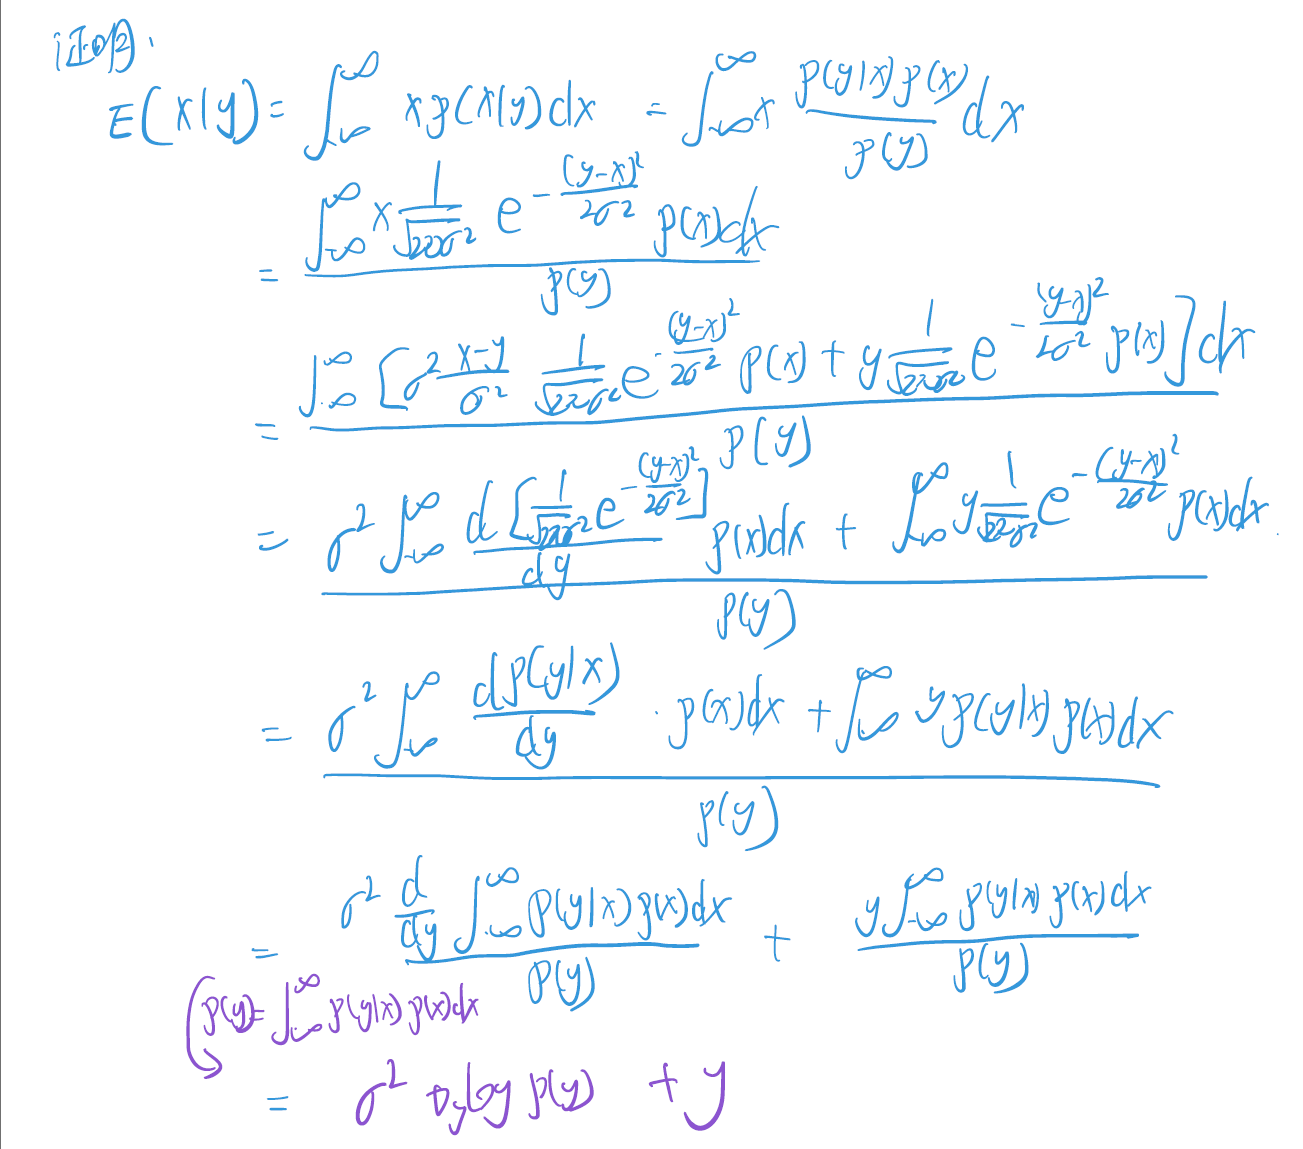 证明.
E(x|y) = ∫_{-∞}^{∞} x p(x|y) dx = ∫_{-∞}^{∞} x \frac{p(y|x) p(x)}{p(y)} dx
= \frac{∫_{-∞}^{∞} x \frac{1}{\sqrt{2πσ^2}} e^{-\frac{(y-x)^2}{2σ^2}} p(x) dx}{p(y)}
= \frac{∫_{-∞}^{∞} [σ^2 \frac{x-y}{σ^2} \frac{1}{\sqrt{2πσ^2}} e^{-\frac{(y-x)^2}{2σ^2}} p(x) + y \frac{1}{\sqrt{2πσ^2}} e^{-\frac{(y-x)^2}{2σ^2}} p(x)] dx}{p(y)}
= \frac{σ^2 ∫_{-∞}^{∞} \frac{d[\frac{1}{\sqrt{2πσ^2}} e^{-\frac{(y-x)^2}{2σ^2}}]}{dy} p(x) dx + ∫_{-∞}^{∞} y \frac{1}{\sqrt{2πσ^2}} e^{-\frac{(y-x)^2}{2σ^2}} p(x) dx}{p(y)}
= \frac{σ^2 ∫_{-∞}^{∞} \frac{dp(y|x)}{dy} · p(x) dx + ∫_{-∞}^{∞} y p(y|x) p(x) dx}{p(y)}
= \frac{σ^2 \frac{d}{dy} ∫_{-∞}^{∞} p(y|x) p(x) dx}{p(y)} + \frac{y ∫_{-∞}^{∞} p(y|x) p(x) dx}{p(y)}
p(y) = ∫_{-∞}^{∞} p(y|x) p(x) dx
= σ^2 ∇_y log p(y) + y